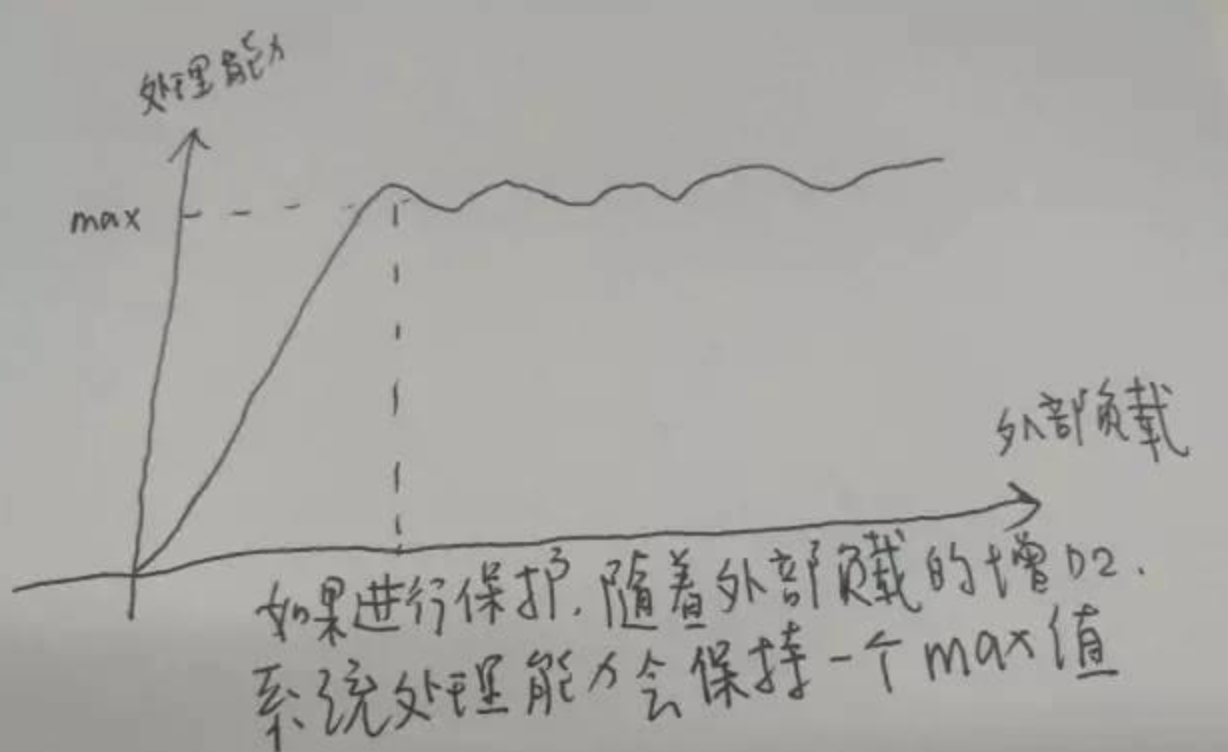 处理能力
max
外部负载
如果进行保护,随着外部负载的增加.
系统处理能力会保持一个max值